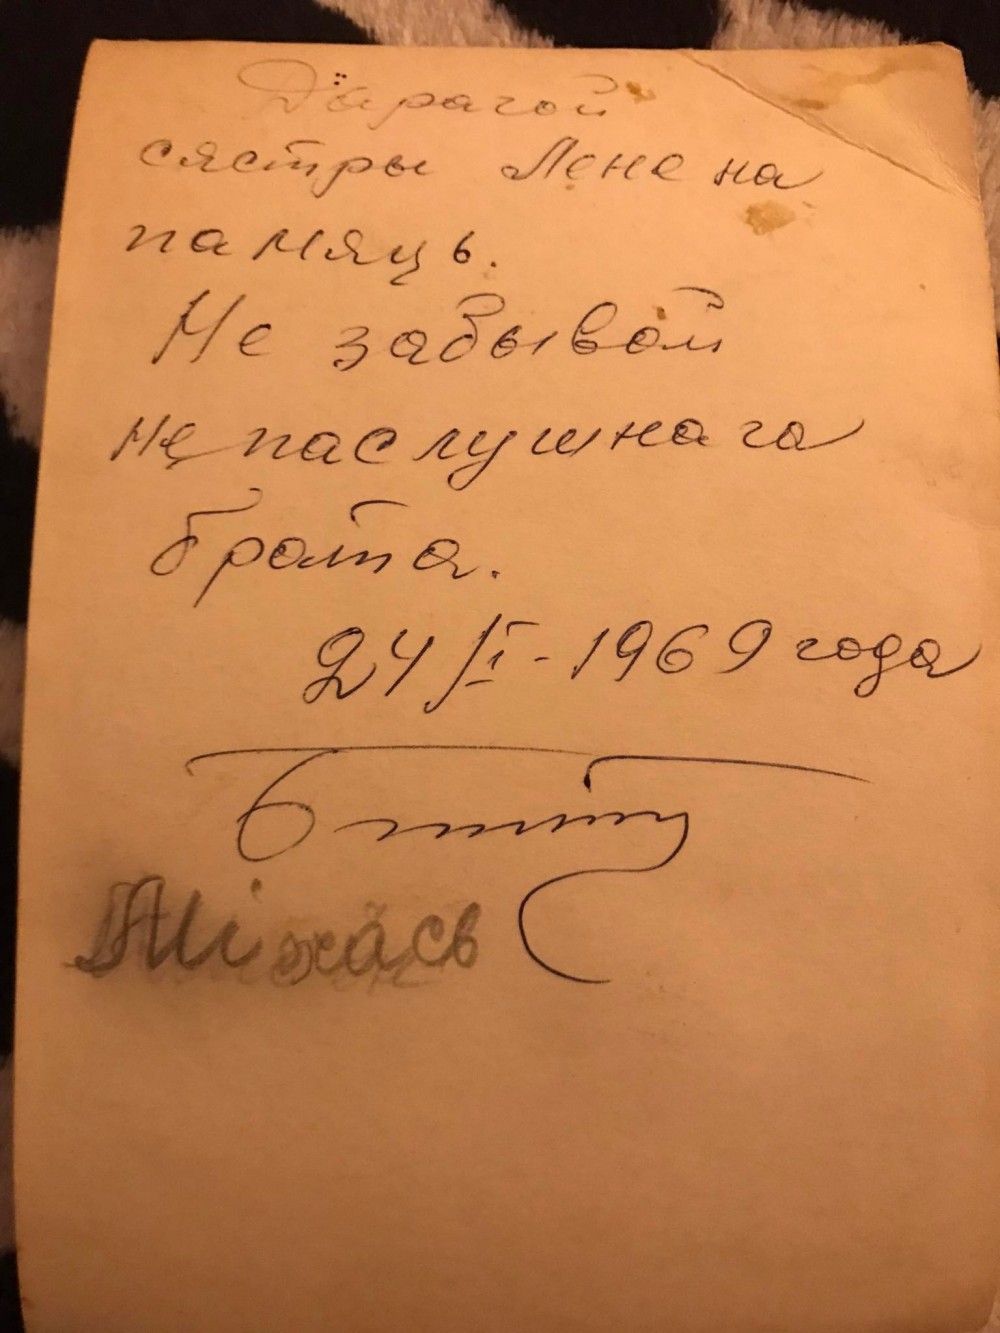 Дарагой
сястры Лене на
памяць.
Не забывай
непаслушнага
брата.
24/I-1969 года
Міхась